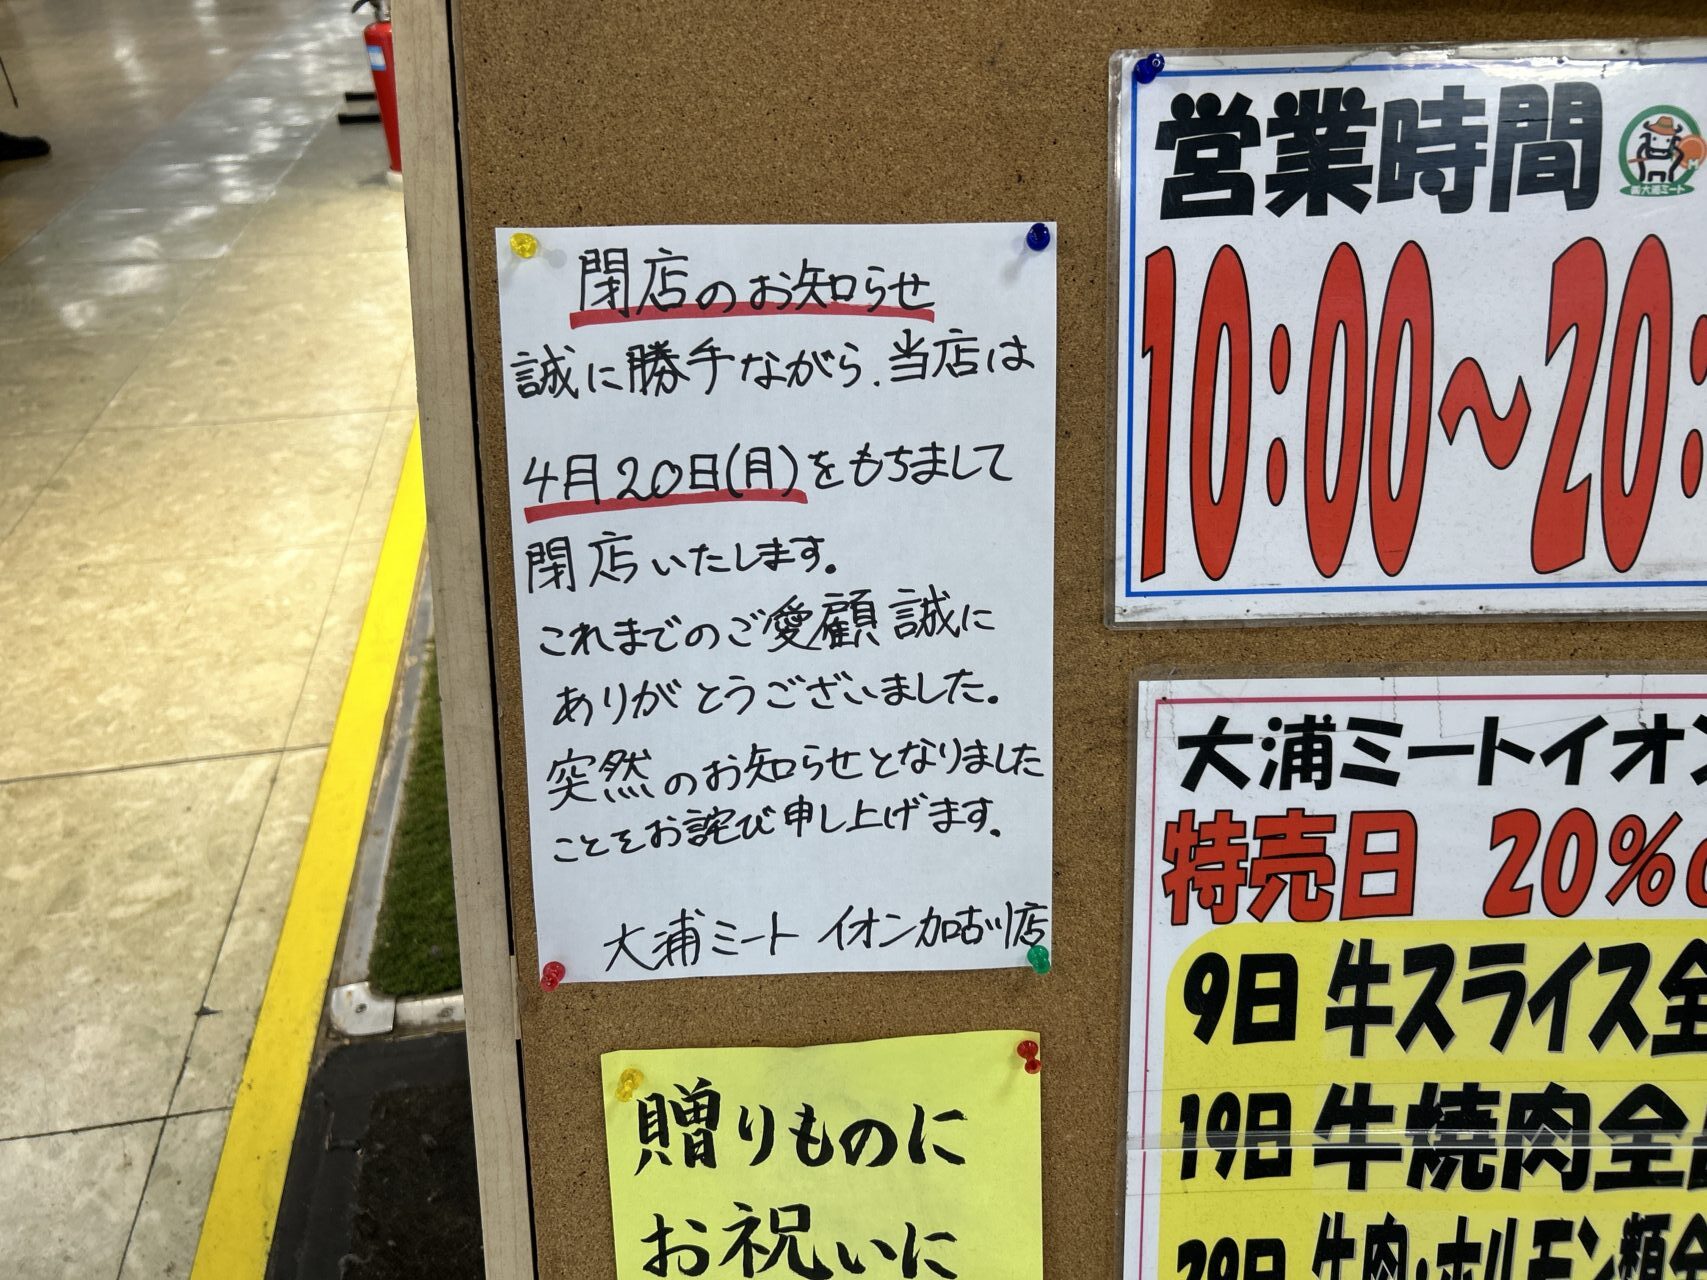 閉店のお知らせ
誠に勝手ながら、当店は
4月20日(月)をもちまして
閉店いたします。
これまでのご愛顧誠に
ありがとうございました。
突然のお知らせとなりました
ことをお詫び申し上げます。
大浦ミート イオン加古川店
贈りものに
お祝いに
営業時間
㈱大浦ミート
10:00～20:
大浦ミートイオン
特売日 20%
9日 牛スライス全
19日 牛焼肉全
29日 牛肉・ホルモン類全